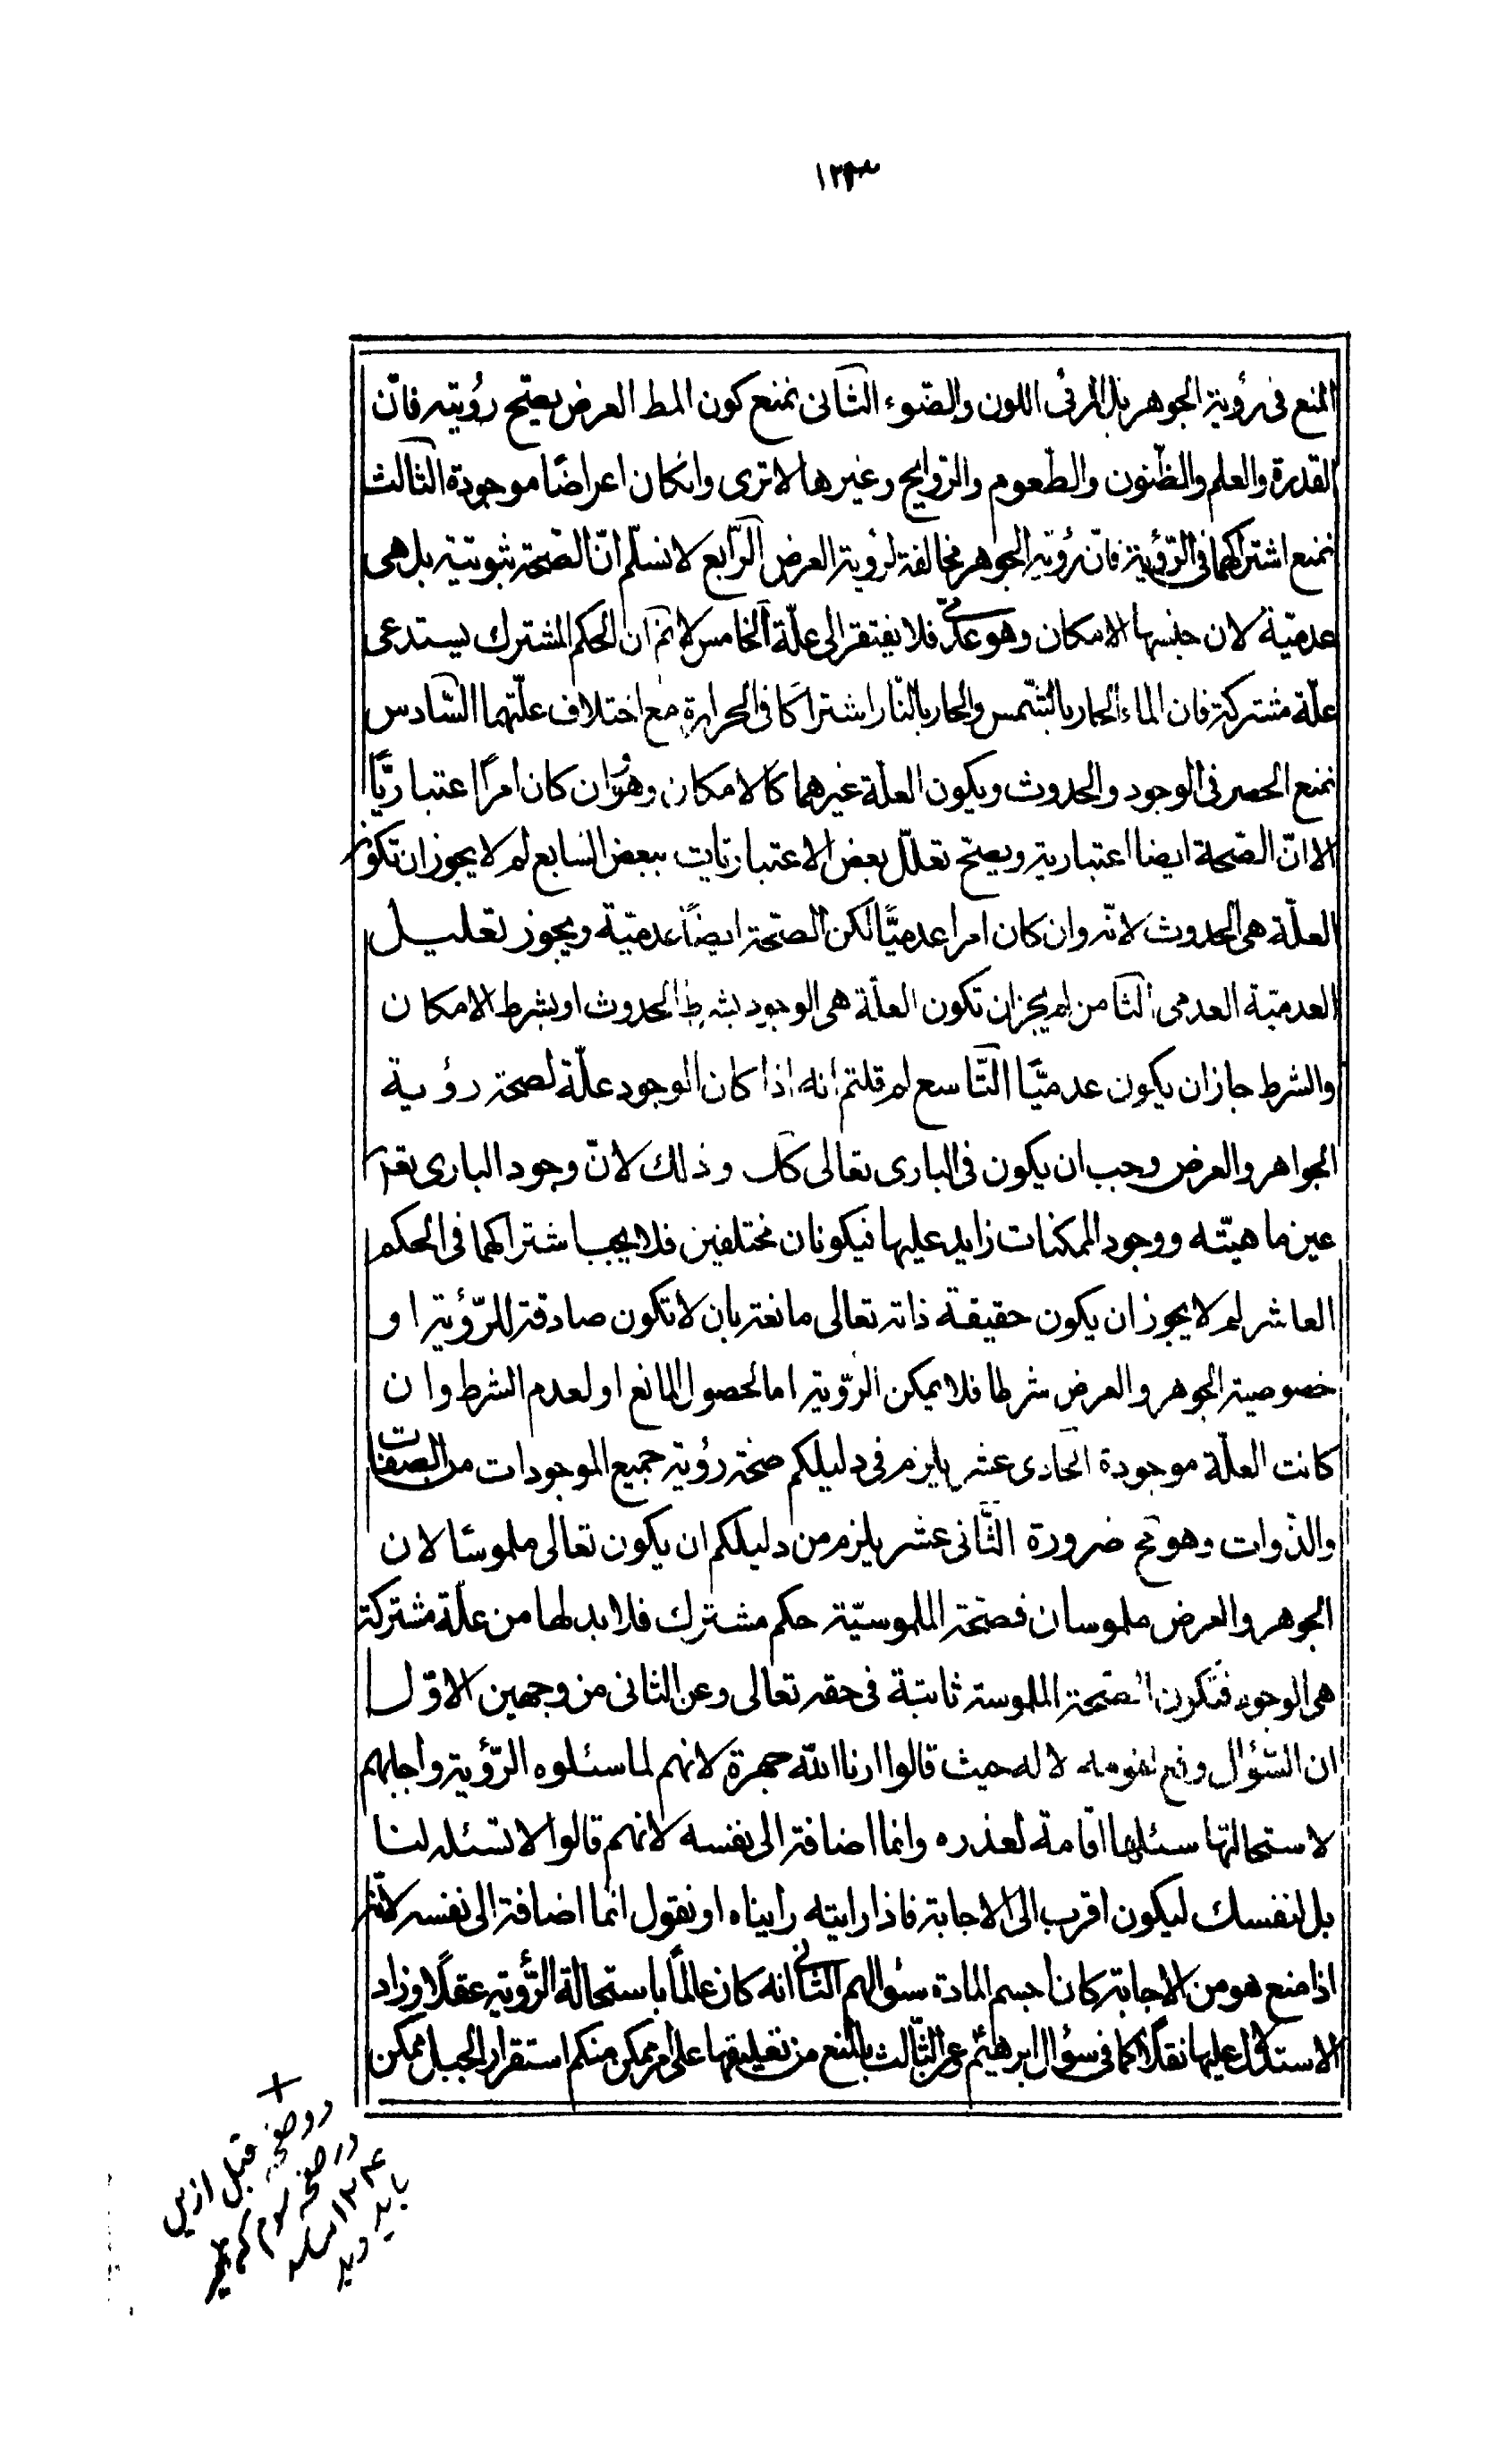 المنع فى رؤية الجوهر بل المرئى اللون والضوء الثانى نمنع كون المط العرض يصح رؤيته فانّ
القدرة والعلم والظنون والطعوم والروايح وغيرها لا ترى وانكان اعراضًا موجودة الثالث
نمنع اشتراكهما فى الرؤية فانّ رؤية الجوهر مخالفة لرؤية العرض الرّابع لا نسلّم انّ الصّحة ثبوتية بل هى
عدميّة لان جنسها الامكان وهو عدمى فلا يفتقر الى علّة الخامس لا نم ان الحكم المشترك يستدعى
علّة مشتركة فان الماء الحار بالشّمس والحار بالنّار اشتراكا فى الحرارة مع اختلاف علّتهما السّادس
نمنع الحصر فى الوجود والحدوث ويكون العلّة غيرهما كالامكان وهو وان كان امرًا اعتباريًّا
الا انّ الصّحة ايضا اعتبارية ويصحّ تعلّل بعض الاعتباريات ببعض السابع لم لا يجوز ان تكون
العلّة هى الحدوث لانّه وان كان امرا عدميًّا لكن الصّحة ايضًا عدميّة ويجوز تعليل
العدميّة العدمى الثامن لم يجز ان تكون العلّة هى الوجود بشرط الحدوث او بشرط الامكان
والشرط جاز ان يكون عدميًّا التّاسع لم قلتم انه اذا كان الوجود علّة لصحة رؤية
الجواهر والعرض وجب ان يكون فى البارى تعالى كك وذلك لانّ وجود البارى تعم
عين ماهيّته ووجود الممكنات زايد عليها فيكونان مختلفين فلا يجب اشتراكهما فى الحكم
العاشر لم لا يجوز ان يكون حقيقة ذاته تعالى مانعة بان لا تكون صادقة للرّؤية او
خصوصية الجوهر والعرض شرطا فلا يمكن الرّوية اما لحصول المانع او لعدم الشرط وان
كانت العلّة موجودة الحادى عشر يلزم فى دليلكم صحّة رؤية جميع الموجودات من الصفات
والذّوات وهو مح ضرورة الثّانى عشر يلزم من دليلكم ان يكون تعالى ملموسًا لان
الجوهر والعرض ملموسان فصحّة الملموسيّة حكم مشترك فلا بد لها من علّة مشتركة
هى الوجود فتكون الصّحة الملموسة ثابتة فى حقه تعالى وعن الثانى من وجهين الاوّل
ان السّؤال وقع لقومه لا له حيث قالوا ارنا الله جهرة لانهم لما سئلوه الرّؤية واجابهم
لاستحالتها سئلها اقامة لعذره وانما اضافة الى نفسه لانهم قالوا لا تسئله لنا
بل لنفسك ليكون اقرب الى الاجابة فاذا رايته رايناه او نقول انما اضافة الى نفسه لانّه
اذا منع هو من الاجابة كان احسم المادة سئوالهم الثّانى انه كان عالمًا باستحالة الرّؤية عقلًا وزاد
الاستدلال عليها نقلًا كما فى سؤال ابرهيم وعن الثّالث بالمنع من تعليقها على امر ممكن منكم استقرار الجبل ممكن
دو صفحه قبل ازين
در صفحه سوم كه
۱۳۴
بايد ديد